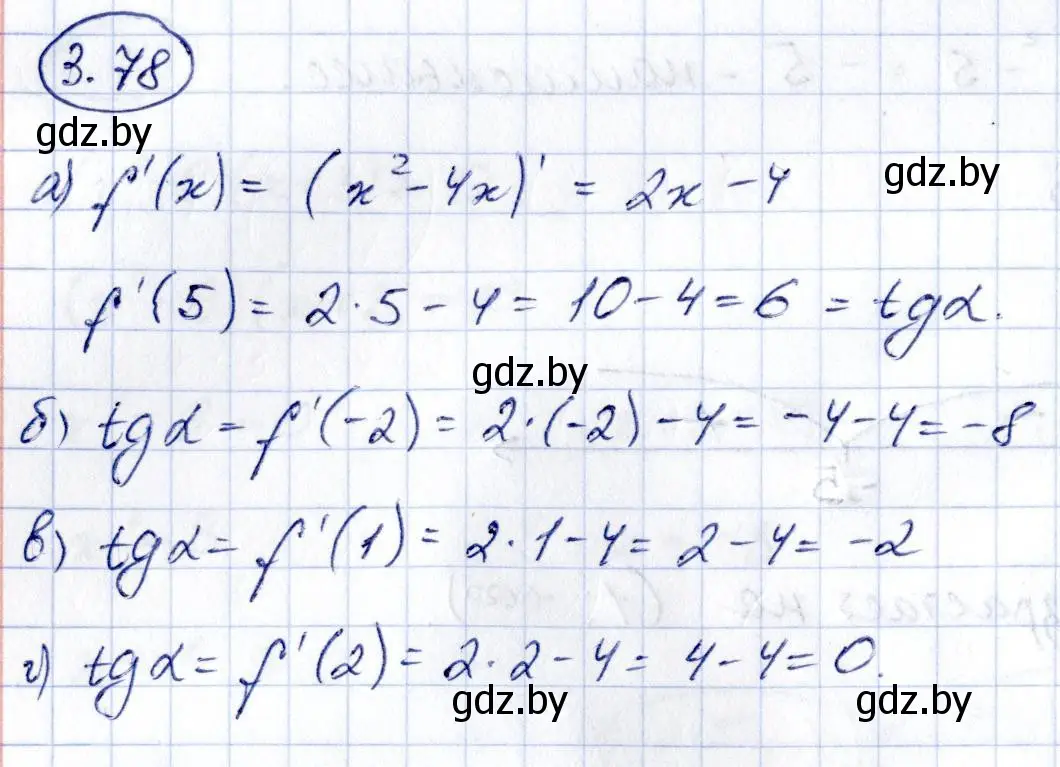 3.78
gdz.by
а) f'(x) = (x² - 4x)' = 2x - 4
gdz.by
f'(5) = 2·5 - 4 = 10 - 4 = 6 = tgα.
gdz.by
б) tgα = f'(-2) = 2·(-2) - 4 = -4 - 4 = -8
в) tgα = f'(1) = 2·1 - 4 = 2 - 4 = -2
г) tgα = f'(2) = 2·2 - 4 = 4 - 4 = 0.
gdz.by
gdz.by